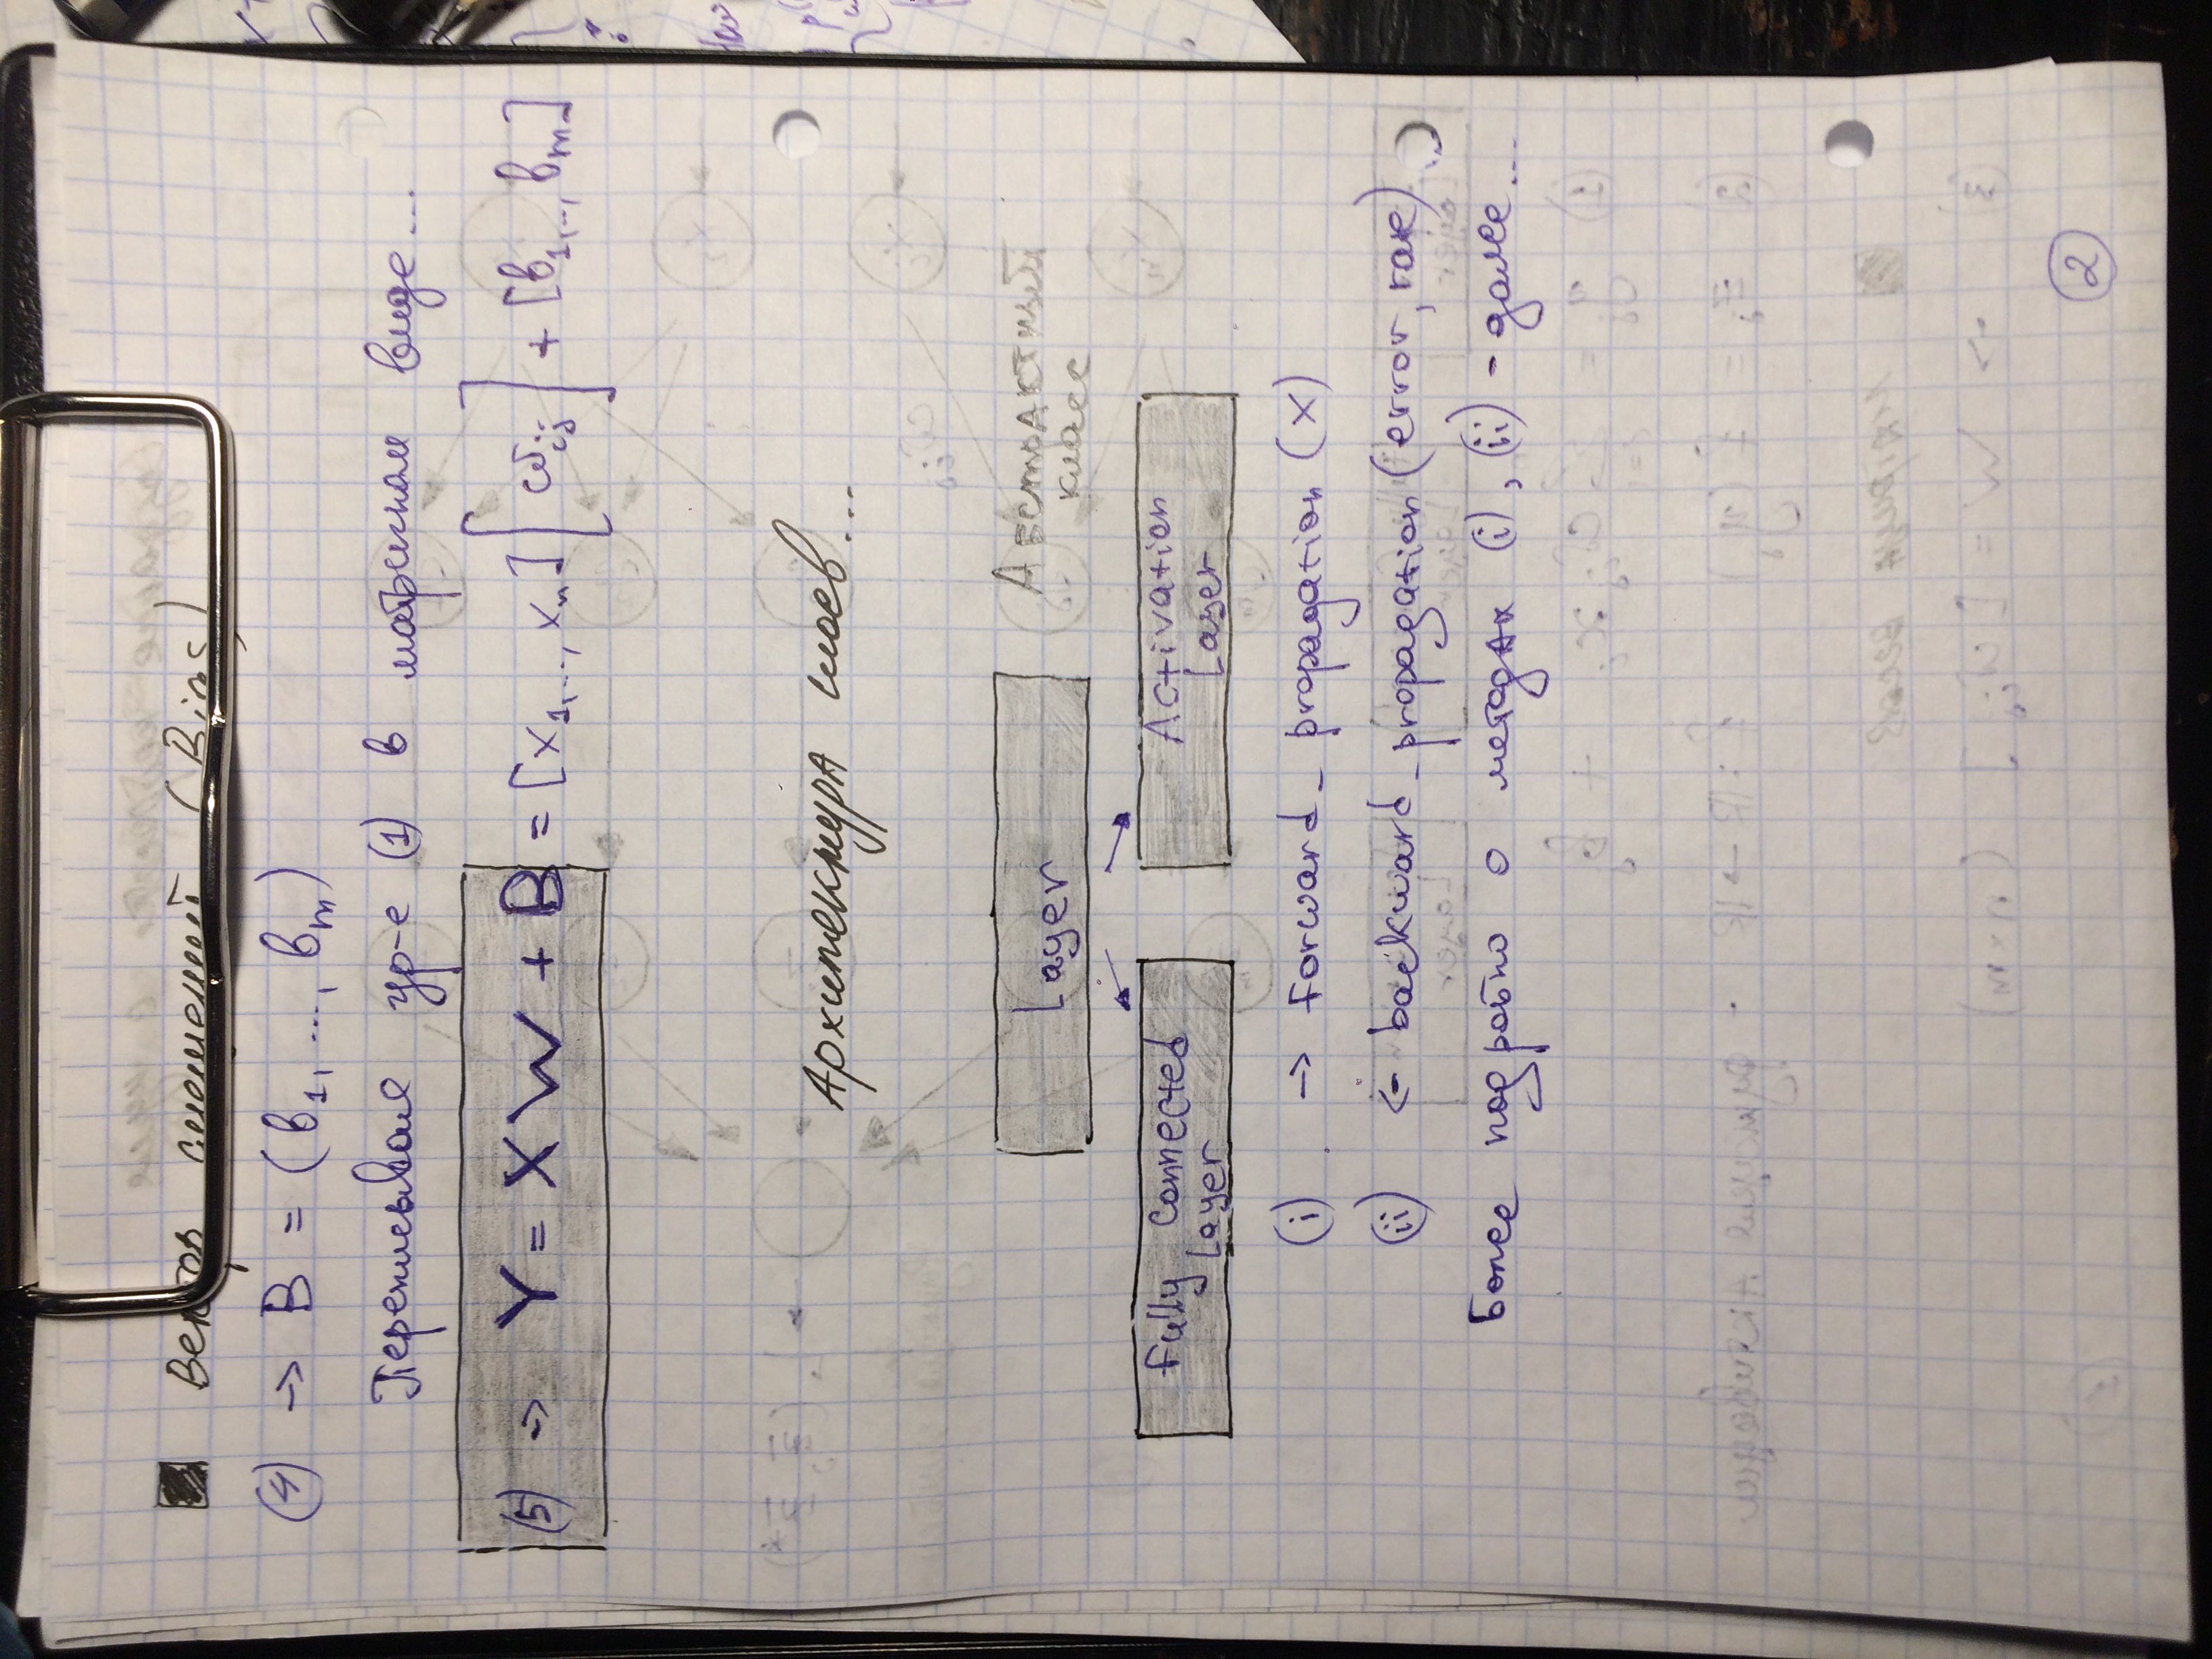 Вектор смещений (Bias)
(4) → B = (b₁, ..., bₘ)
Переписывая ур-е (1) в матричном виде...
(5) → Y = XW + B = [x₁, ..., xₙ] [ωᵢⱼ] + [b₁, .., bₘ]
Архитектура слоев...
Layer
Абстрактный
класс
Fully Connected
Layer
Activation
Layer
(i) → forward_propagation (x)
(ii) ← backward_propagation (error, rate)
Более подробно о методах (i), (ii) - далее...
2